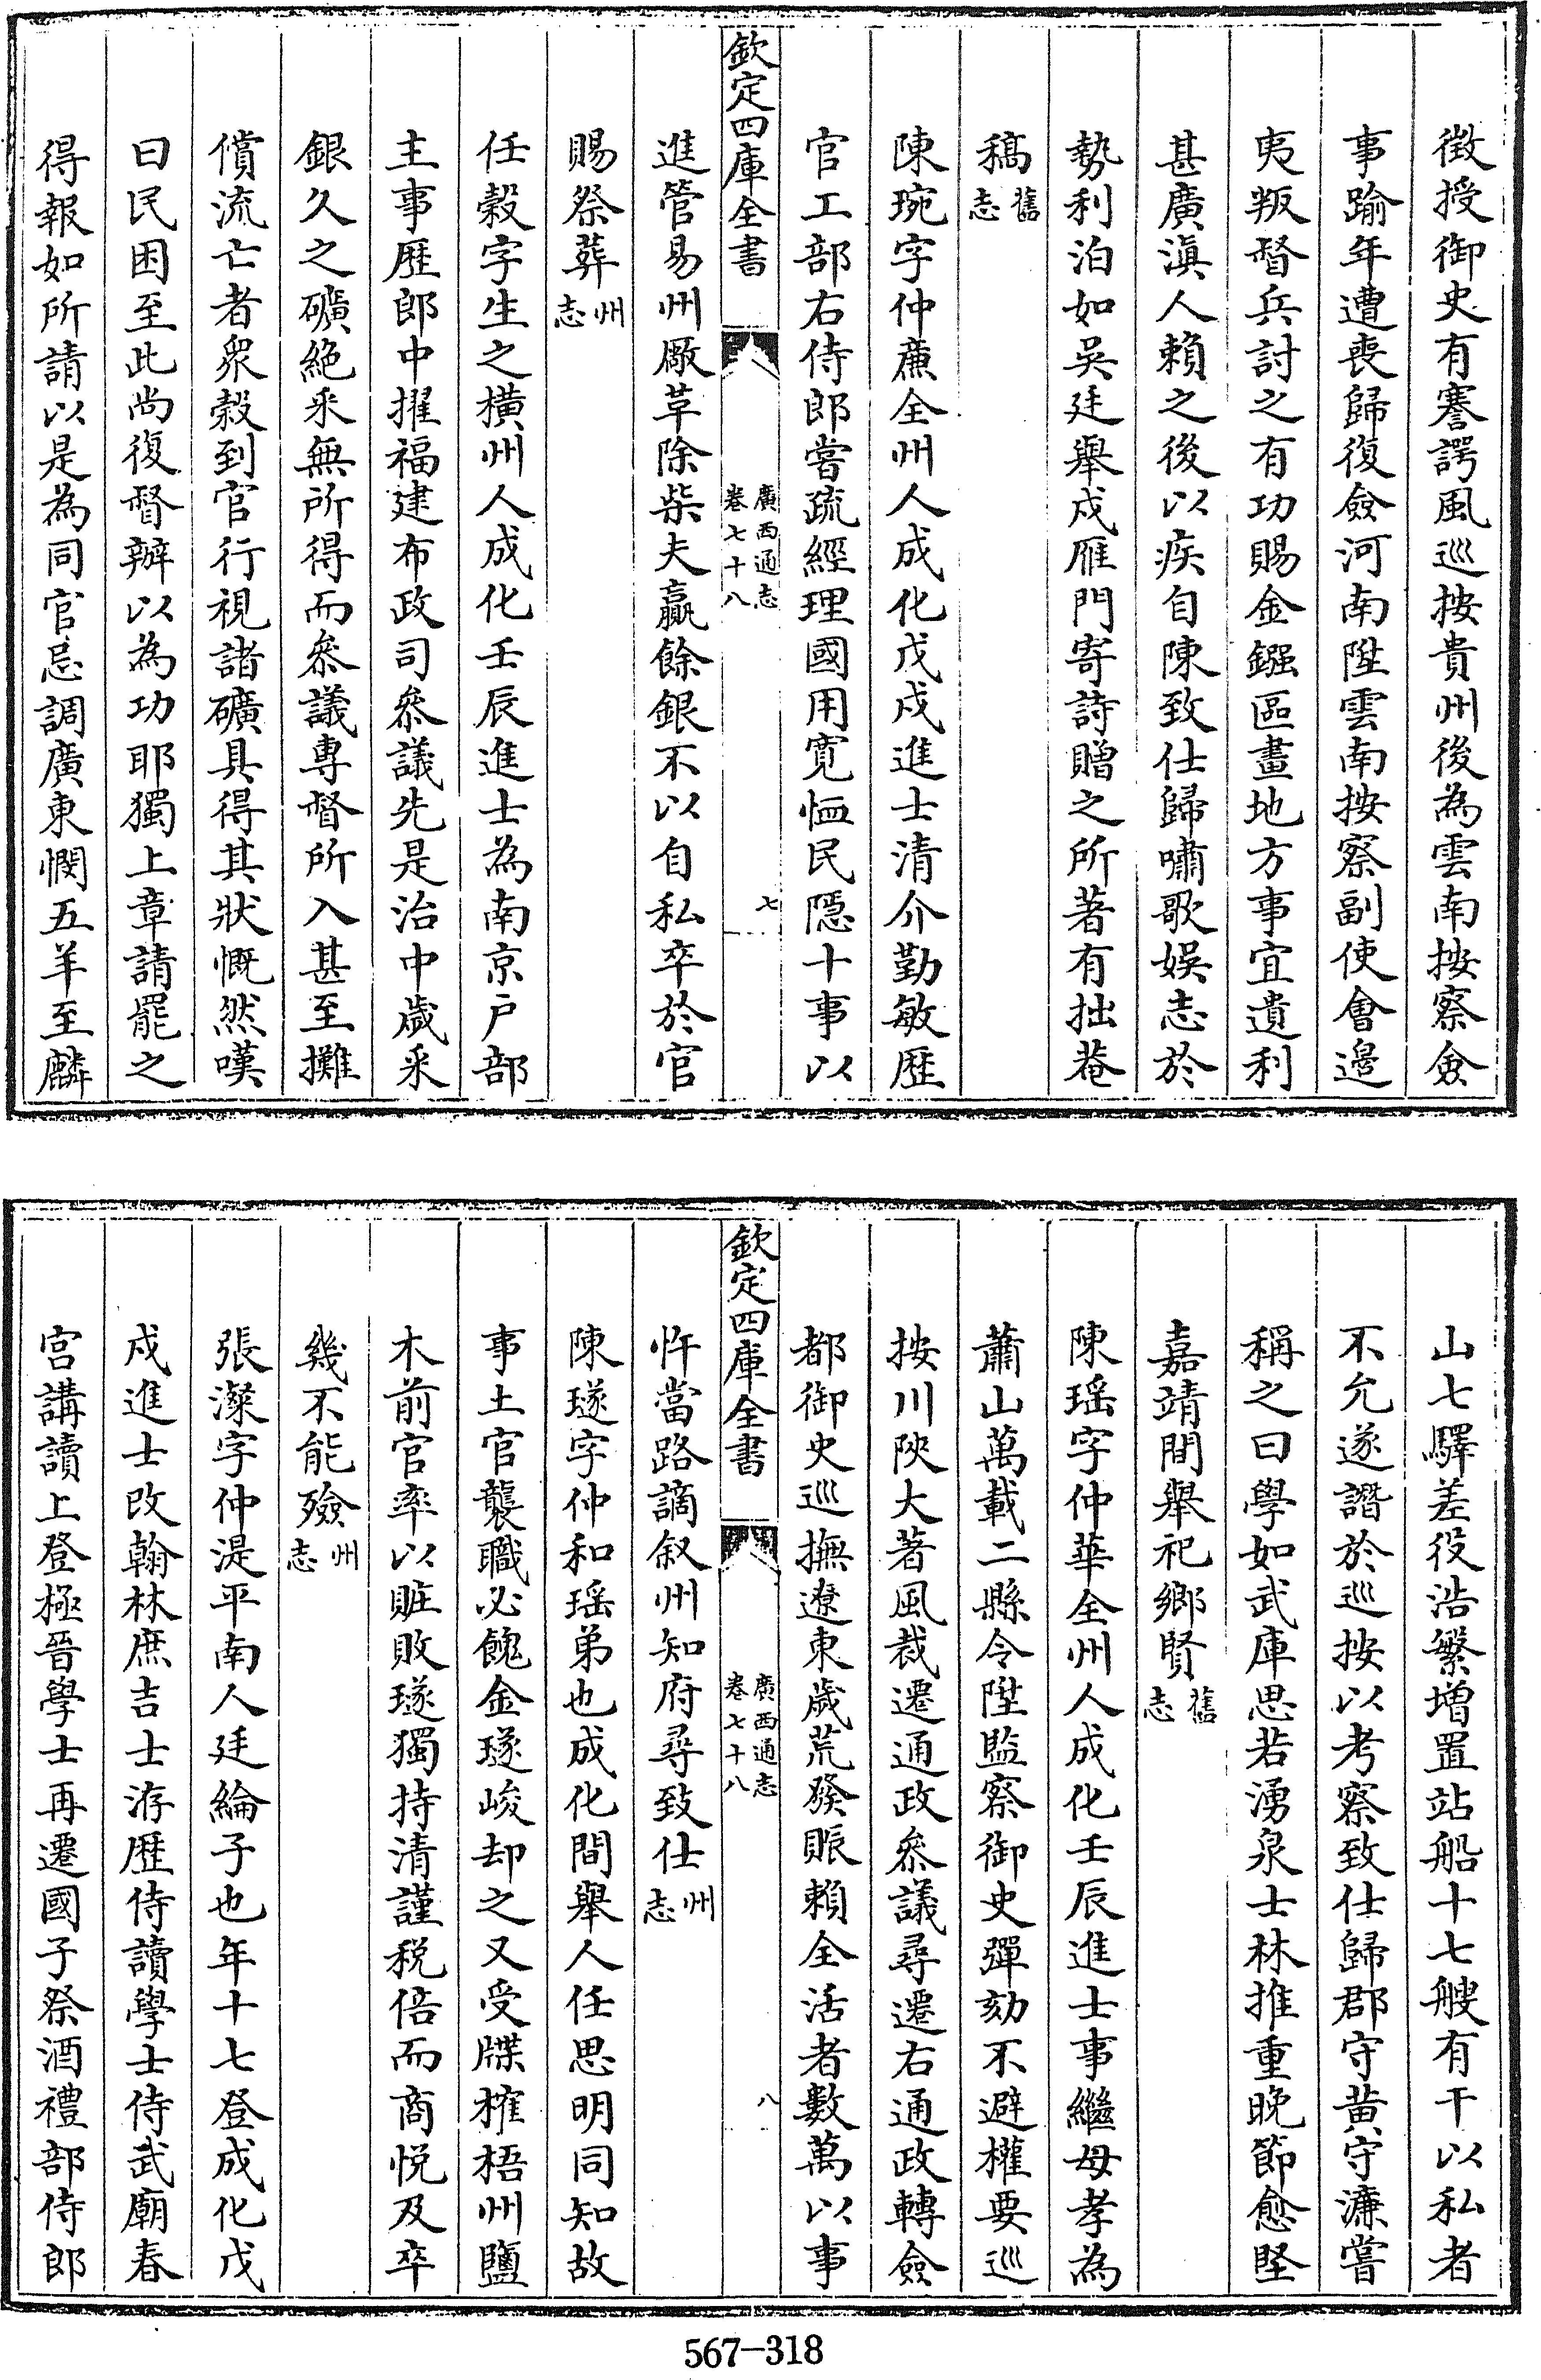 徴授御史有謇諤風巡按貴州後為雲南按察僉
事踰年遭喪歸復僉河南陞雲南按察副使會邊
夷叛督兵討之有功賜金鏹區畫地方事宜遺利
甚廣滇人賴之後以疾自陳致仕歸嘯歌娱志於
勢利泊如吳廷舉戍雁門寄詩贈之所著有拙菴
稿舊志
陳琬字仲亷全州人成化戊戌進士清介勤敏歴
官工部右侍郎嘗疏經理國用寛恤民隱十事以
欽定四庫全書
廣西通志
卷七十八
七
進管易州廠草除柴夫贏餘銀不以自私卒於官
賜祭葬州志
任榖字生之横州人成化壬辰進士為南京户部
主事歴郎中擢福建布政司叅議先是治中歲采
銀久之礦絶采無所得而叅議專督所入甚至攤
償流亡者衆榖到官行視諸礦具得其狀慨然嘆
曰民困至此尚復督辦以為功耶獨上章請罷之
得報如所請以是為同官忌調廣東憫五羊至麟
山七驛差役浩繁增置站船十七艘有干以私者
不允遂譖於巡按以考察致仕歸郡守黄守濂嘗
稱之曰學如武庫思若湧泉士林推重晚節愈堅
嘉靖間舉祀鄉賢舊志
陳瑶字仲華全州人成化壬辰進士事繼母孝為
蕭山萬載二縣令陞監察御史彈劾不避權要巡
按川陜大著風裁遷通政叅議尋遷右通政轉僉
都御史巡撫遼東歲荒發賑賴全活者數萬以事
欽定四庫全書
廣西通志
卷七十八
八
忤當路謫叙州知府尋致仕州志
陳璲字仲和瑶弟也成化間舉人任思明同知故
事土官襲職必餽金璲峻却之又受牒榷梧州鹽
木前官率以賍敗璲獨持清謹税倍而商悦及卒
幾不能殮州志
張澯字仲湜平南人廷綸子也年十七登成化戊
戌進士改翰林庶吉士洊歴侍讀學士侍武廟春
宫講讀上登極晉學士再遷國子祭酒禮部侍郎
567-318